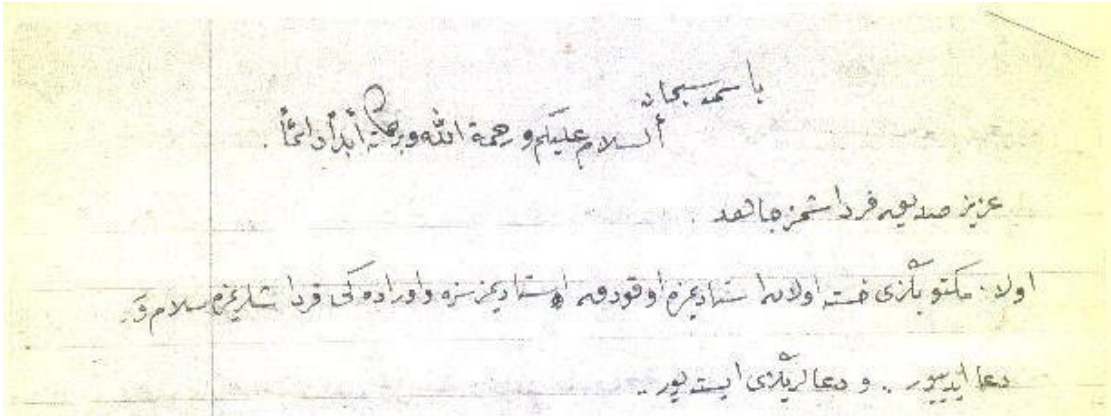 باسمه سبحانه
ألسلام عليكم ورحمة الله وبركاته أبداً دائماً
عزيز صديق قرداشمز جاهد
اولا: مكتوبڭزى خسته اولان استاديمزه اوقودق استاديمز سزه واوراده كى قرداشلريمزه سلام و
دعا ايدييور.. و دعالريڭزى ايسته يور..